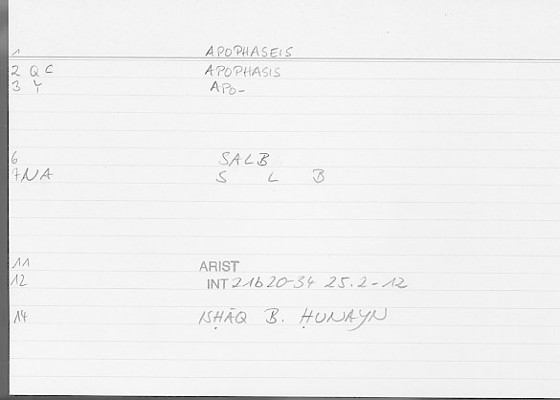 1 APOPHASEIS
2 Q C APOPHASIS
3 Y APO-
6 SALB
7 NA S L B
11 ARIST
12 INT 21b20-34 25.2-12
14 ISḤĀQ B. ḤUNAYN